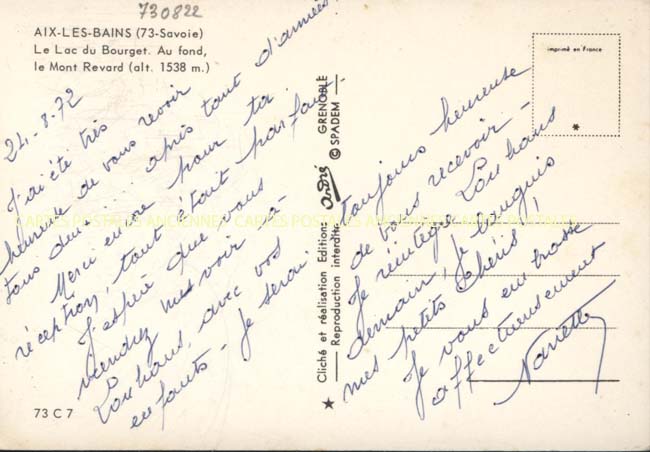 730822
AIX-LES-BAINS (73-Savoie)
Le Lac du Bourget. Au fond,
le Mont Revard (alt. 1538 m.)
24-8-72
J'ai été très
heureuse de vous revoir
tous deux après tant d'années
Merci encore pour ta
réception, tout était parfait
J'espère que vous
viendrez nous voir à
Louhans, avec vos
enfants - Je serai
73 C 7
Cliché et réalisation Editions André GRENOBLE
Reproduction interdite © SPADEM
imprimé en France
*
toujours heureuse
de vous recevoir -
Je réintègre Louhans
demain, je languis
mes petits chéris !
Je vous embrasse
affectueusement
Nanette
CARTES POSTALES ANCIENNES CARTES POSTALES ANCIENNES CARTES POSTALES